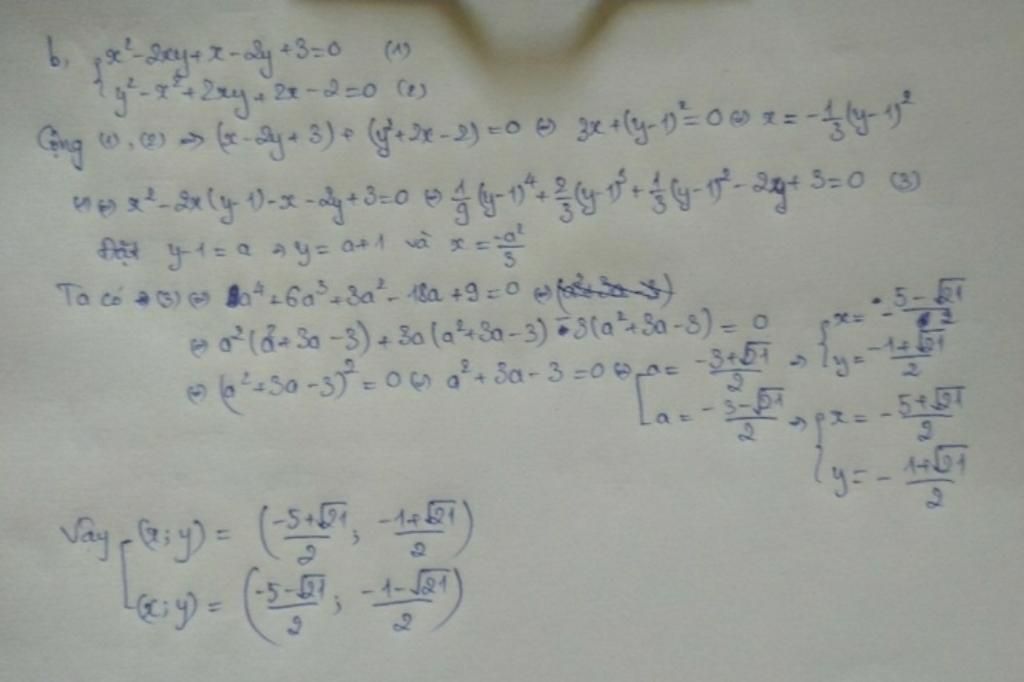 b, { x² - 2xy + x - 2y + 3 = 0 (1)
{ y² - x² + 2xy + 2x - 2 = 0 (2)
Cộng (1), (2) => (x - 2y + 3) + (y² + 2x - 2) = 0 <=> 3x + (y-1)² = 0 <=> x = -1/3 (y-1)²
(1) <=> x² - 2x(y-1) - x - 2y + 3 = 0 <=> 1/9 (y-1)⁴ + 2/3 (y-1)³ + 1/3 (y-1)² - 2y + 3 = 0 (3)
Đặt y-1 = a => y = a+1 và x = -a²/3
Ta có (3) <=> a⁴ + 6a³ + 3a² - 18a + 9 = 0 <=>
<=> a²(a² + 3a - 3) + 3a(a² + 3a - 3) - 3(a² + 3a - 3) = 0
<=> (a² + 3a - 3)² = 0 <=> a² + 3a - 3 = 0 <=> [ a = (-3+√21)/2 => { x = -(5-√21)/2
{ y = (-1+√21)/2
[ a = -(3-√21)/2 => { x = -(5+√21)/2
{ y = -(1+√21)/2
Vậy [ (x; y) = ((-5+√21)/2; (-1+√21)/2)
[ (x; y) = ((-5-√21)/2; (-1-√21)/2)